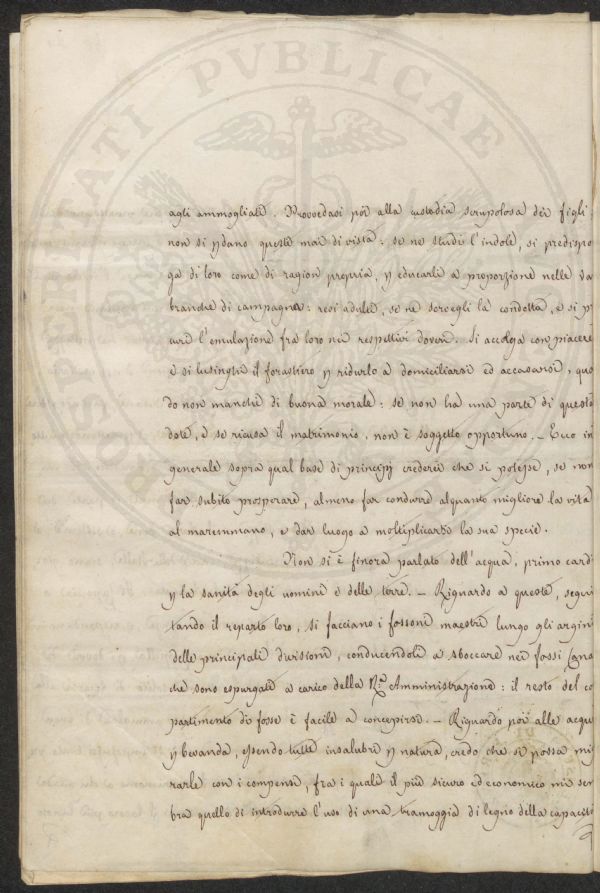 PROSPERITATI PVBLICAE
agli ammogliati. Provvedasi poi alla custodia scrupolosa dei figli:
non si perdano questi mai di vista: se ne studi l'indole, si
di loro come di ragion propria, per educarli a proporzione nelle
branche di campagna: resi adulti, se ne sorvegli la condotta, e si
l'emulazione fra loro nei respettivi doveri. Si accolga con piacere
e si lusinghi il forastiero per ridurlo a domiciliarsi ed accasarsi,
non manchi di buona morale: se non ha una parte di questa
dote, e se ricusa il matrimonio, non è soggetto opportuno. - Ecco in
generale sopra qual base di principj crederei che si potesse, se non
far subito prosperare, almeno far condurre alquanto migliore la vita
al maremmano, e dar luogo a moltiplicarsi la sua specie.
Non si è finora parlato dell'acqua, primo
per la sanità degli uomini e delle terre. - Riguardo a queste,
il reparto loro, si facciano i fossoni maestri lungo gli argini
delle principali divisioni, conducendoli a sboccare nei fossi
che sono espurgati a carico della Rle. Amministrazione: il resto del
partimento di fosse è facile a concepirsi. - Riguardo poi alle
per bevanda, essendo tutte insalubri per natura, credo che si possa
rarle con i compensi, fra i quali il più sicuro ed economico mi sem
bra quello di introdurre l'uso di una tramoggia di legno della capacità